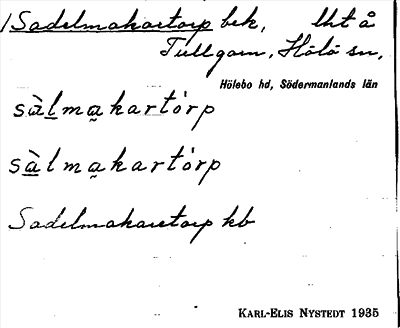 /Sadelmakartorp bek, lht å
Tullgarn, Hölö sn,
Hölebo hd, Södermanlands län
sàl̲ma̬kartórp
sà̲lma̬kartórp
Sadelmakaretorp kb
KARL-ELIS NYSTEDT 1935